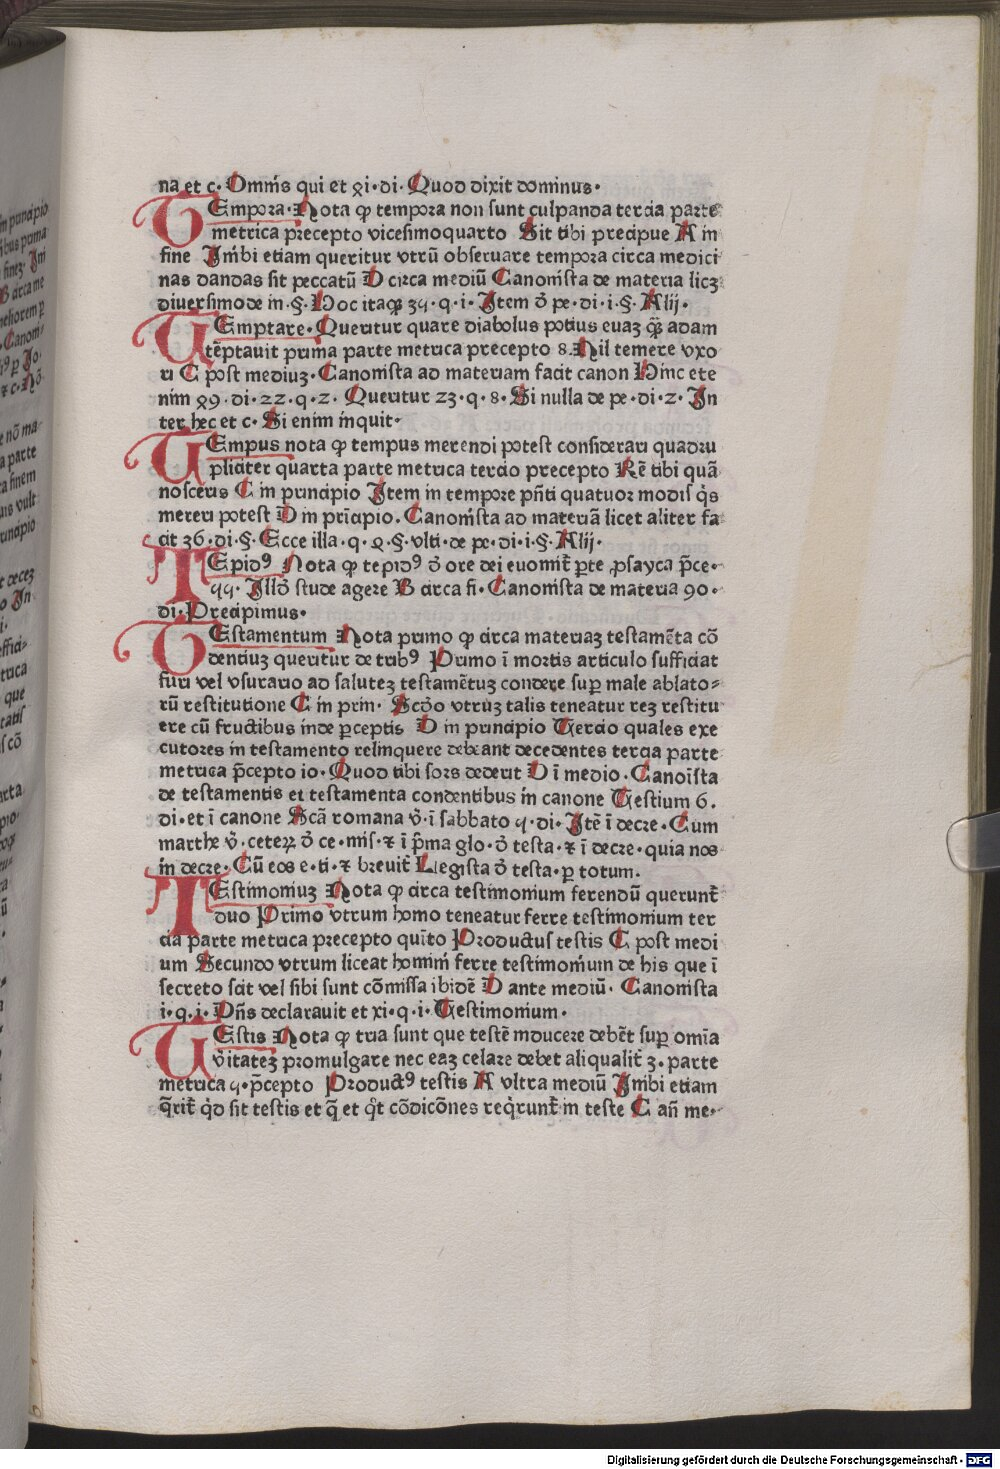 na et c. Omnis qui et ꝯi·di· Quod dixit dominus·
TEmpora·Nota ꝙ tempora non sunt culpanda tercia parte
metrica precepto vicesimoquarto Sit tibi precipue A in
fine Jnibi etiam queritur vtrū obseruare tempora circa medici
nas dandas sit peccatū D circa mediū Canonista de materia licꝫ
diuersimode in·§·Hoc itaqꝫ 3ꝗ·q·i·Jtem ō pe·di·i·§·Alij·
TEmptare·Queritur quare diabolus potius euaꝫ ꝙ̄ adam
tēptauit prima parte metrica precepto 8·Nil temere vxo
ri C post mediuꝫ·Canonista ad materiam facit canon Hinc ete
nim ꝯ9·di·22·q·2·Queritur 23·q·8·Si nulla de pe·di·2·Jn
ter hec et c·Si enim inquit·
TEmpus nota ꝙ tempus merendi potest considerari quadru
pliciter quarta parte metrica tercio precepto Rē tibi quā
nosceris C in principio Jtem in tempore pn̄ti quatuor modis q̇s
mereri potest D in prīcipio·Canonista ad materiā licet aliter fa
cit 36·di·§·Ecce illa·q·ꝯ·§·vlti·de pe·di·i·§·Alij·
TEpidꝰ Nota ꝙ tepidꝰ ō ore dei euomit̄ ꝑte ꝓsayca p̄ce·
ꝗꝗ·Jllō stude agere B circa fi·Canonista de materia 90·
di·Precipimus·
TEstamentum Nota primo ꝙ circa materiaꝫ testamēta cō
dentiuꝫ queritur de tribꝰ Primo ī mortis articulo sufficiat
furi vel vsurario ad saluteꝫ testamētuꝫ condere suꝑ male ablato⸗
rū restitutione C in prin·Scd̄o vtruꝫ talis teneatur reꝫ restitu
ere cū fructibus inde ꝑceptis D in principio Tercio quales exe
cutores in testamento relinquere debeant decedentes tercia parte
metrica p̄cepto io·Quod tibi sors dederit D ī medio·Canoīsta
de testamentis et testamenta condentibus in canone Testium 6·
di·et ī canone Scā romana v̇·ī sabbato ꝗ·di·Jtē ī decre·Cum
marthe v̇·ceteꝝ ō ce·mis·⁊ ī p̄ma glo·ō testa·⁊ ī decre·quia nos
in decre·Cū eos e·ti·⁊ breuit̄ Llegista ō testa·ꝑ totum·
TEstimoniuꝫ Nota ꝙ circa testimonium ferendū querunt̄
duo Primo vtrum homo teneatur ferre testimonium ter
cia parte metrica precepto quīto Productus testis C post medi
um Secundo vtrum liceat homini ferre testimonium de his que ī
secreto scit vel sibi sunt cōmissa ibidē D ante mediū·Canonista
i·q·i·Dn̄s declarauit et xi·q·i·Testimonium·
TEstis Nota ꝙ tria sunt que testē inducere debēt suꝑ om̄ia
v̇itateꝫ promulgare nec eaꝫ celare debet aliqualit̄ 3·parte
metrica ꝗ·p̄cepto Productꝰ testis A vltra mediū Jnibi etiam
q̄rit̄ q̇d sit testis et q̄ et q̇t cōdicōnes req̇runt̄ in teste C an̄ me·
Digitalisierung gefördert durch die Deutsche Forschungsgemeinschaft - DFG